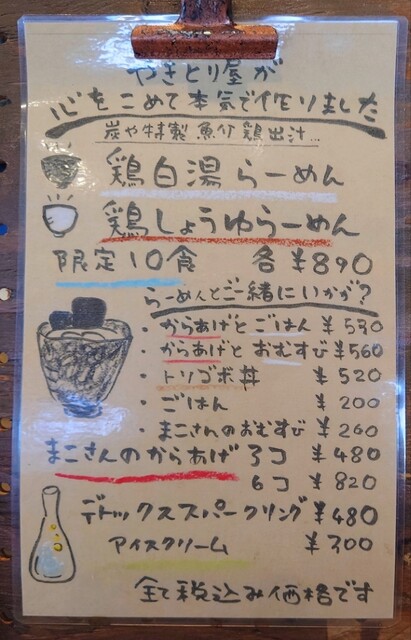 やきとり屋が
心をこめて本気で作りました
炭や特製魚介鶏出汁...
鶏白湯らーめん
鶏しょうゆらーめん
限定10食 各¥890
らーめんとご一緒にいかが?
・からあげとごはん ¥530
・からあげとおむすび ¥560
・トリゴボ丼 ¥520
・ごはん ¥200
・まこさんのおむすび ¥260
まこさんのからあげ 3コ ¥480
6コ ¥820
デトックススパークリング ¥480
アイスクリーム ¥300
全て税込み価格です